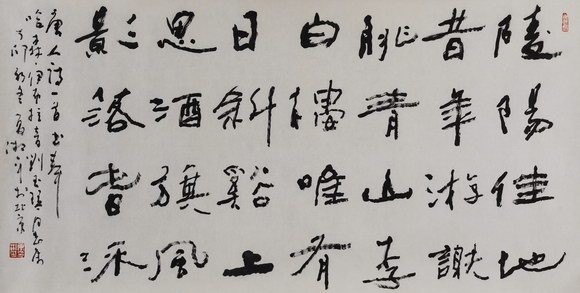 陵陽佳地
昔年游謝
朓青山李
白樓唯有
日斜谿上
思酒旗風
影落春流
唐人诗一首书奉